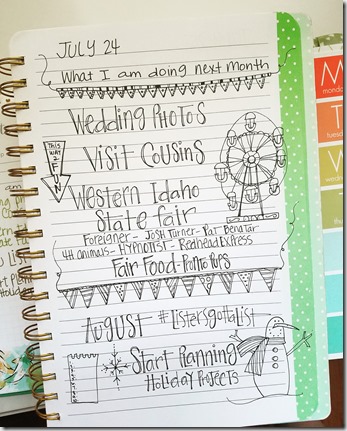 JULY 24
What I am doing next month
Wedding Photos
THIS WAY
Visit Cousins
Western Idaho
State fair
Foreigner - Josh Turner - Pat Benatar
4H animals - HYPNOTIST - Redhead Express
Fair Food - Pronto Pups
AUGUST #ListersgottaList
Start Planning
Holiday Projects
M
monday
T
W